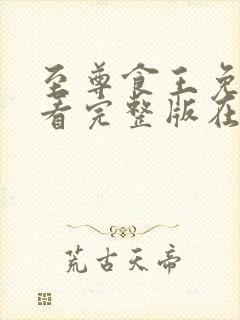 至尊食王免
看完整版在
荒古天帝